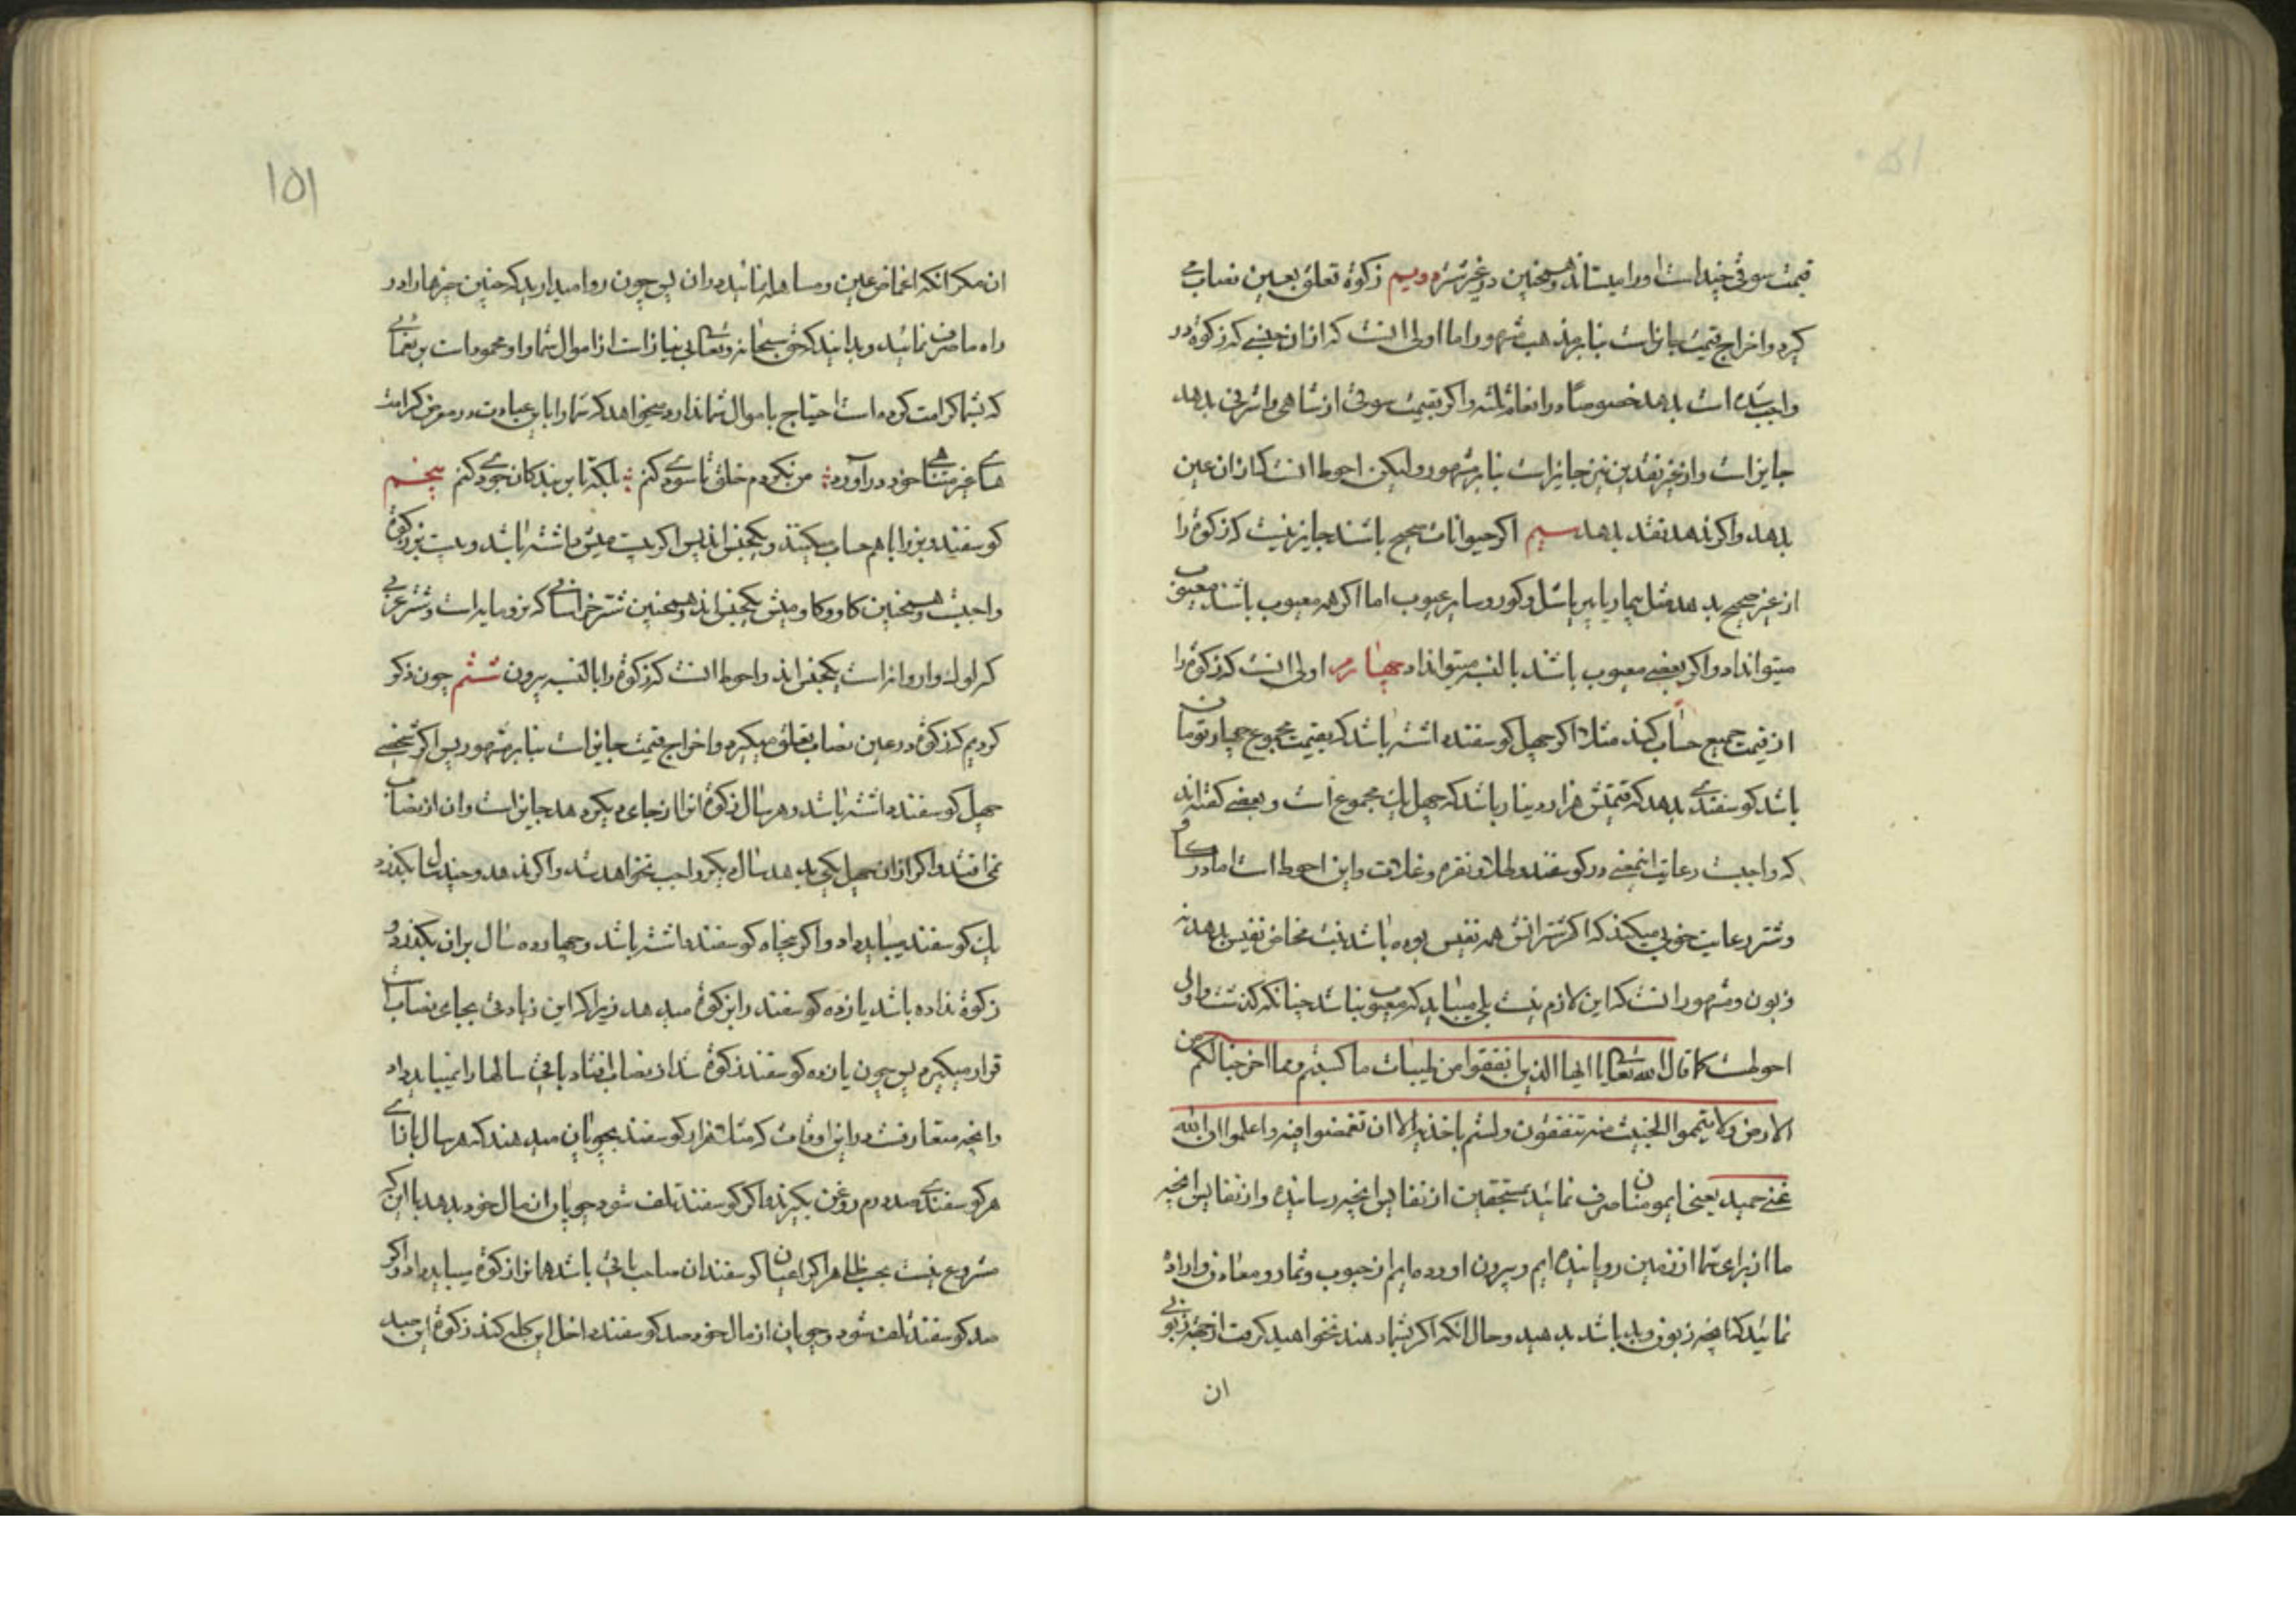 قیمت سوقی چند است او را میستاند و همچنین در غیر شتر دویم زکوة تعلق بعین نصاب می
کیرد و اخراج قیمت جایز است بنا بر مذهب مشهور و اما اولی انست که از ان جنسی که زکوة در
واجب شده است بدهد خصوصا در انعام ثلثه و اکر بقیمت سوقی از شاهی و اشرفی بدهد
جایز است و از غیر نقدین نیز جایز است بنا بر مشهور و لیکن احوط انست که از ان عین
بدهد و اکر ندهد نقد بدهد سیم اکر حیوانات صحیح باشند جایز نیست که زکوة را
از غیر صحیح بدهد مثل بیمار یا پیر یا شل و کور و سایر عیوب اما اکر همه معیوب باشند معیوب
میتواند داد و اکر بعضی معیوب باشند بالنسبه میتواند داد چهارم اولی انست که زکوة را
از قیمت جمیع حساب کند مثلا اکر چهل کوسفند داشته باشد که بقیمت مجموع چهار تومان
باشد کوسفندی بدهد که قیمتش هزار دینار باشد که چهل یک مجموع است و بعضی کفته اند
که واجبست رعایت اینمعنی در کوسفند و طلا و نقره و غلات و این احوط است اما در کاو
و شتر رعایت خوبی میکند که اکر شترانش همه نفیس بوده باشد بنت مخاض نفیس بدهد نه
زبون و مشهور انست که این لازم نیست بلی میباید که معیوب نباشد چنانکه کذشت و اولی
احوطست کما قال الله تعالی یا ایها الذین انفقوا من طیبات ما کسبتم و مما اخرجنا لکم من
الارض و لا تیمموا الخبیث منه تنفقون و لستم باخذیه الا ان تغمضوا فیه و اعلموا ان الله
غنی حمید یعنی ای مومنان صرف نمائید بمستحقین از نفایس انچه رسانیده و از نفایس انچه
ما از برای شما از زمین رویانیده ایم و بیرون اورده ایم از حبوب و ثمار و معادن و اراده
نمائید که انچه زبون و بد باشد بدهید و حال انکه اکر بشما دهند نخواهید کرفت از جهة زبونی
ان
۱۵۱
ان مکر انکه اغماض عین و مساهله نمائید در ان پس چون روا میدارید که چنین چیزها را در
راه ما صرف نمائید و بدانید که حق سبحانه و تعالی بی نیاز است از اموال شما و او محمود است بر نعمتهائی
که بشما کرامت کرده است احتیاج باموال شما ندارد میخواهد که شما را باین عبادت در معرض کرامت
های غیر متناهی خود در آورد من نکردم خلق تا سودی کنم بلکه تا بر بندکان جودی کنم پنجم
کوسفند و بز را با هم حساب میکنند و یکجنس اند پس اکر بیست میش داشته باشد و بیست بز زکوة
واجبست و همچنین کاو و کاومیش یکجنس اند و همچنین شتر خراسانی که بزرو مایه است و شتر عربی
که لوک و اروانه است یکجنس اند و احوط انست که زکوة را بالنسبه بیرون ششم چون ذکر
کردیم که زکوة در عین نصاب تعلق میکیرد و اخراج قیمت جایز است بنا بر مشهور پس اکر شخصی
چهل کوسفند داشته باشد و هر سال زکوة انرا از جای دیکر دهد جایز است و ان از نصاب
نمی افتد و اکر از ان چهل یکی بدهد سال دیکر واجب نخواهد شد و اکر ندهد و چند سال بکذرد
یک کوسفند میباید داد و اکر پنجاه کوسفند داشته باشد و چهارده سال بران بکذرد و
زکوة نداده باشد یازده کوسفند را بزکوة میدهد زیرا که این زیادتی بجای نصاب
قرار میکیرد پس چون یازده کوسفند زکوة شد از نصاب افتاد باقی سالها را نمیباید داد
و انچه متعارفست در این اوقات که مثلا هزار کوسفند بچوپان میدهند که هر سال بازای
هر کوسفندی صد درم روغن بکیرند و اکر کوسفند تلف شود چوپان از مال خود بدهد با انکه
مشروع نیست بحسب ظاهر اکر اعیان کوسفندان صاحب باقی باشد همان را زکوة میباید داد و اکر
صد کوسفند تلف شود و چوپان از مال خود صد کوسفند داخل این کله کند زکوة این صد